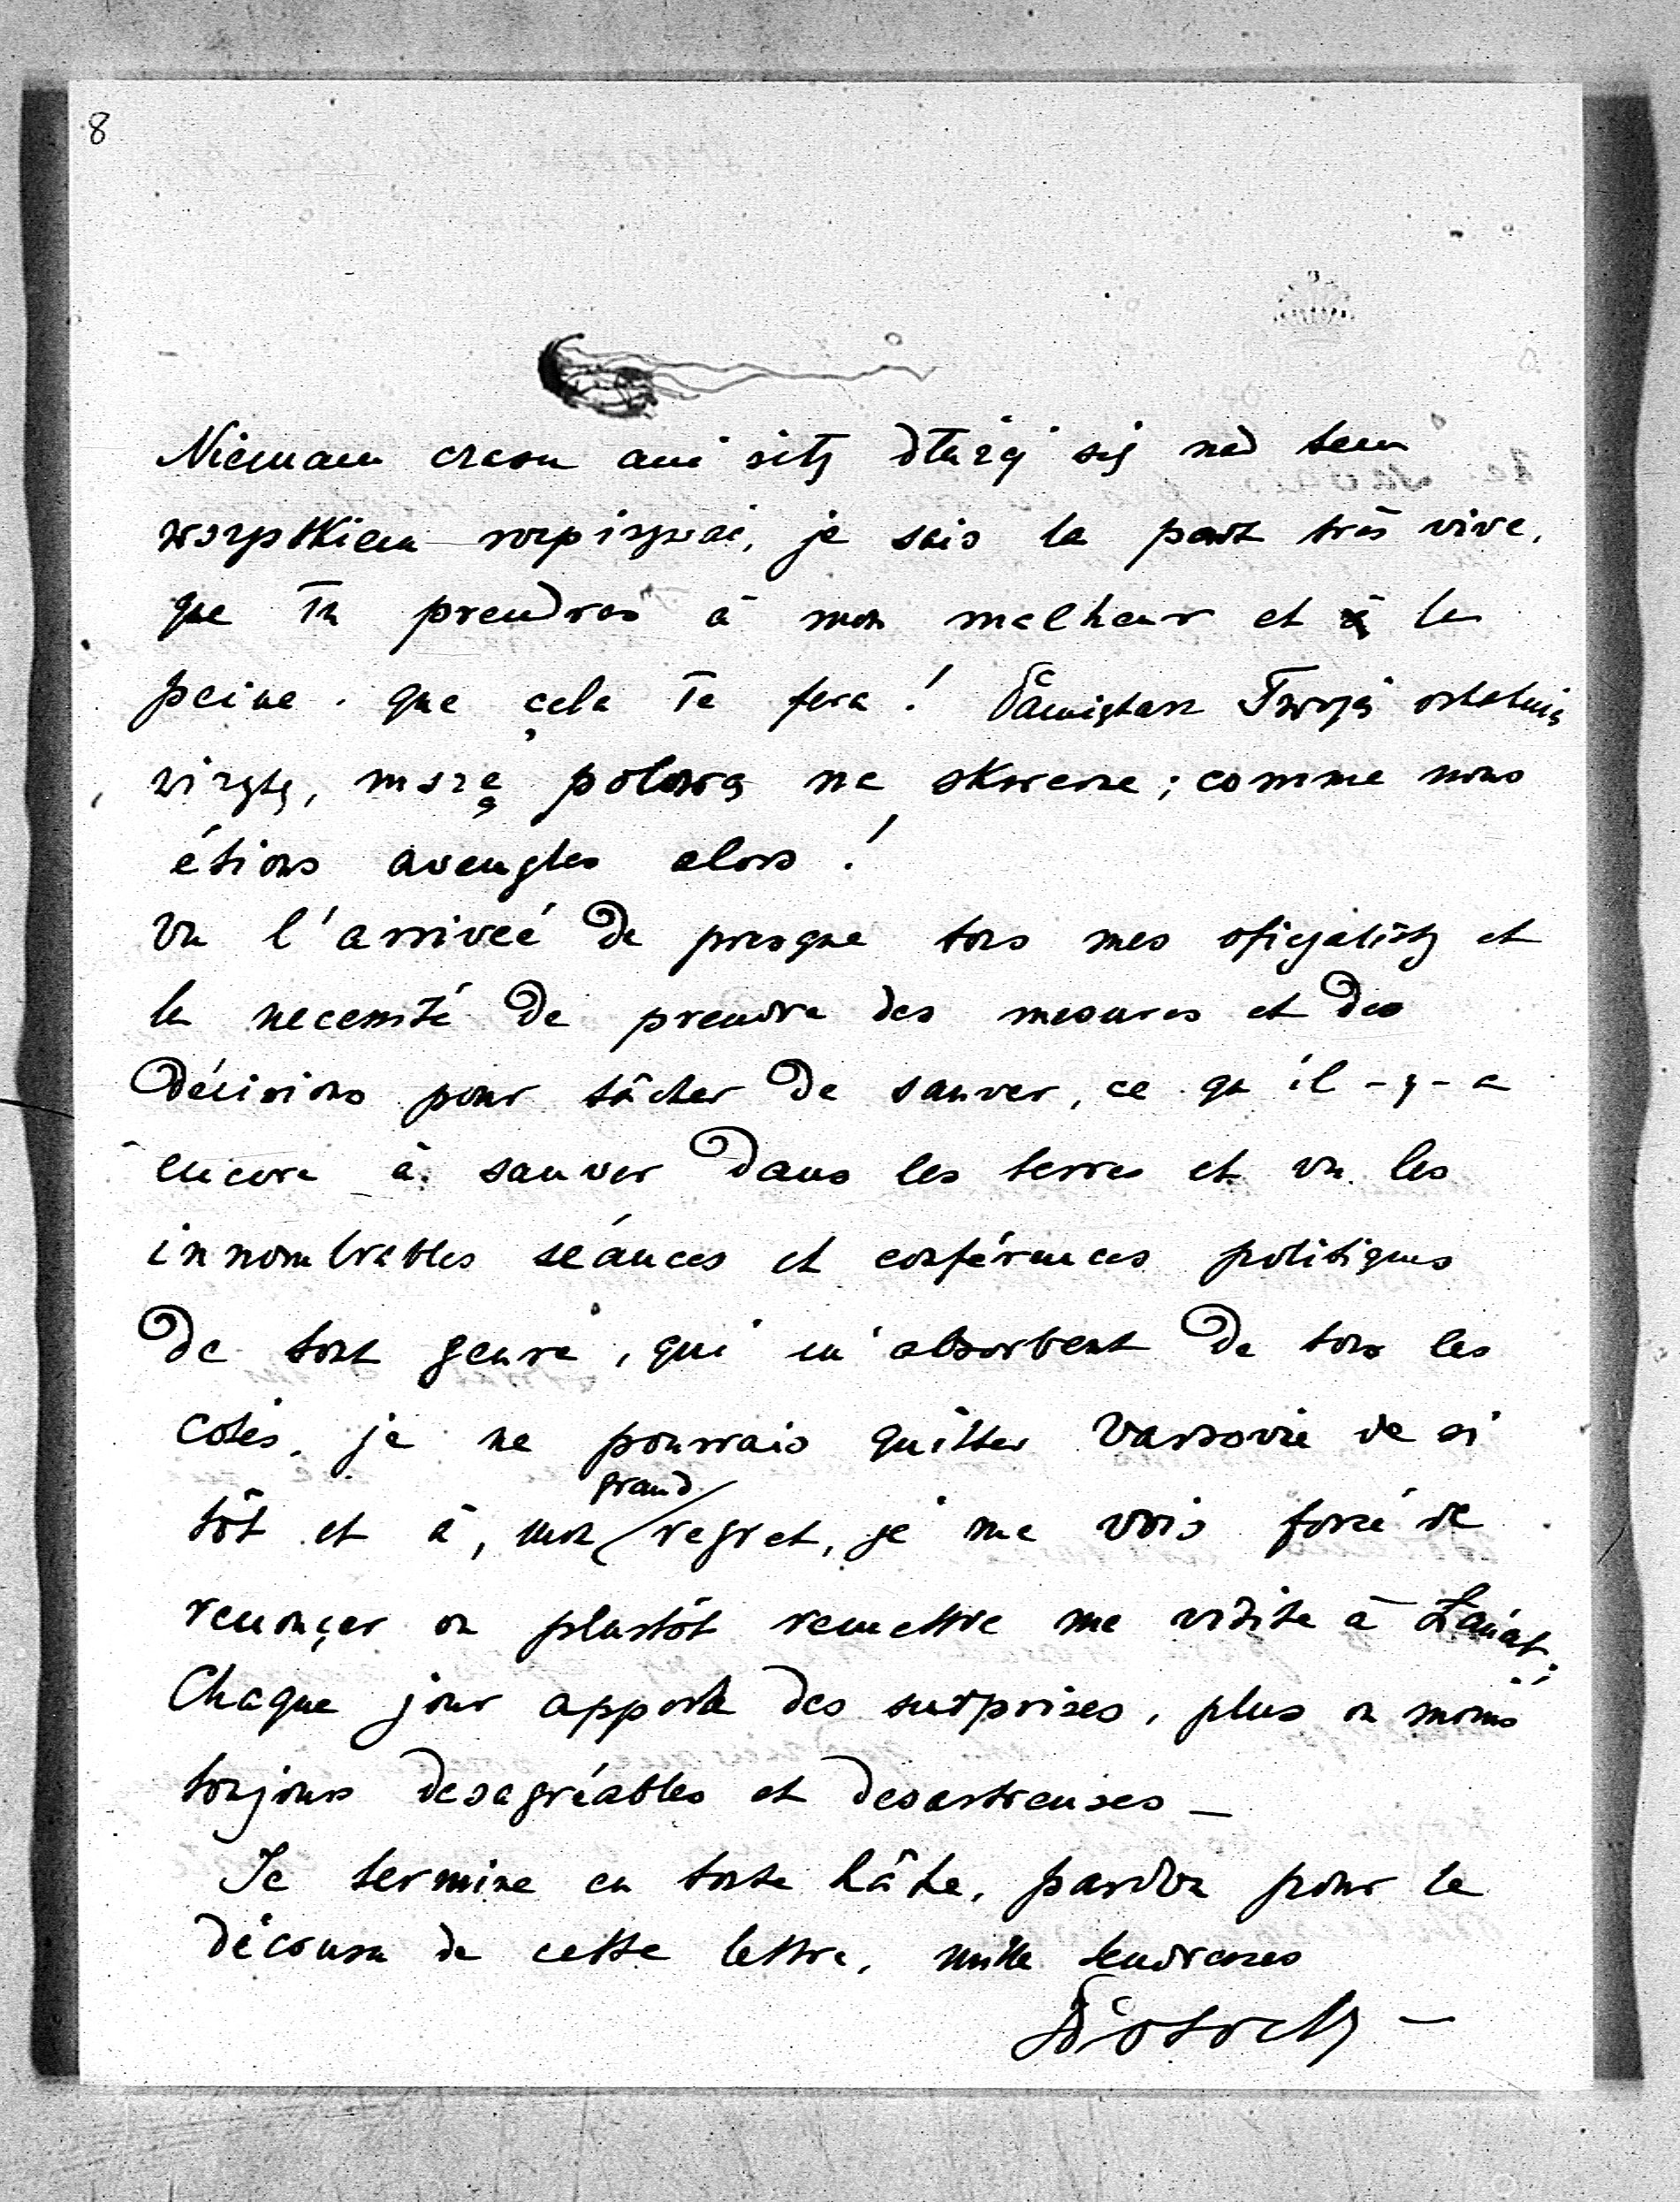 8
Niemam czasu ani siły dłużej się nad tem
wszystkiem rozpisywać, je sais la part très vive,
que Tu prendras à mon malheur et à la
peine que cela Te fera! Pamiętasz Twoją ostatnią
wizytę, mszę polową na skwerze; comme nous
étions aveugles alors!
Vu l'arriveé de presque tous mes oficjalisty et
la necessité de prendre des mesures et des
décisions pour tâcher de sauver, ce qu'il-y-a
encore à sauver dans les terres et vu les
innombrables séances et conférences politiques
de tout genre, qui m'absorbent de tous les
cotés, je ne pourrais quitter Varsovie de si
tôt et à, mon grand regret, je me vois forcé de
renonçer ou plustôt remettre ma visite à Łańcut;
Chaque jour apporte des surprises, plus ou moins
toujours desagréables et desastreuses —
Je termine en toute hâte, pardon pour le
décousu de cette lettre, mille tendresses